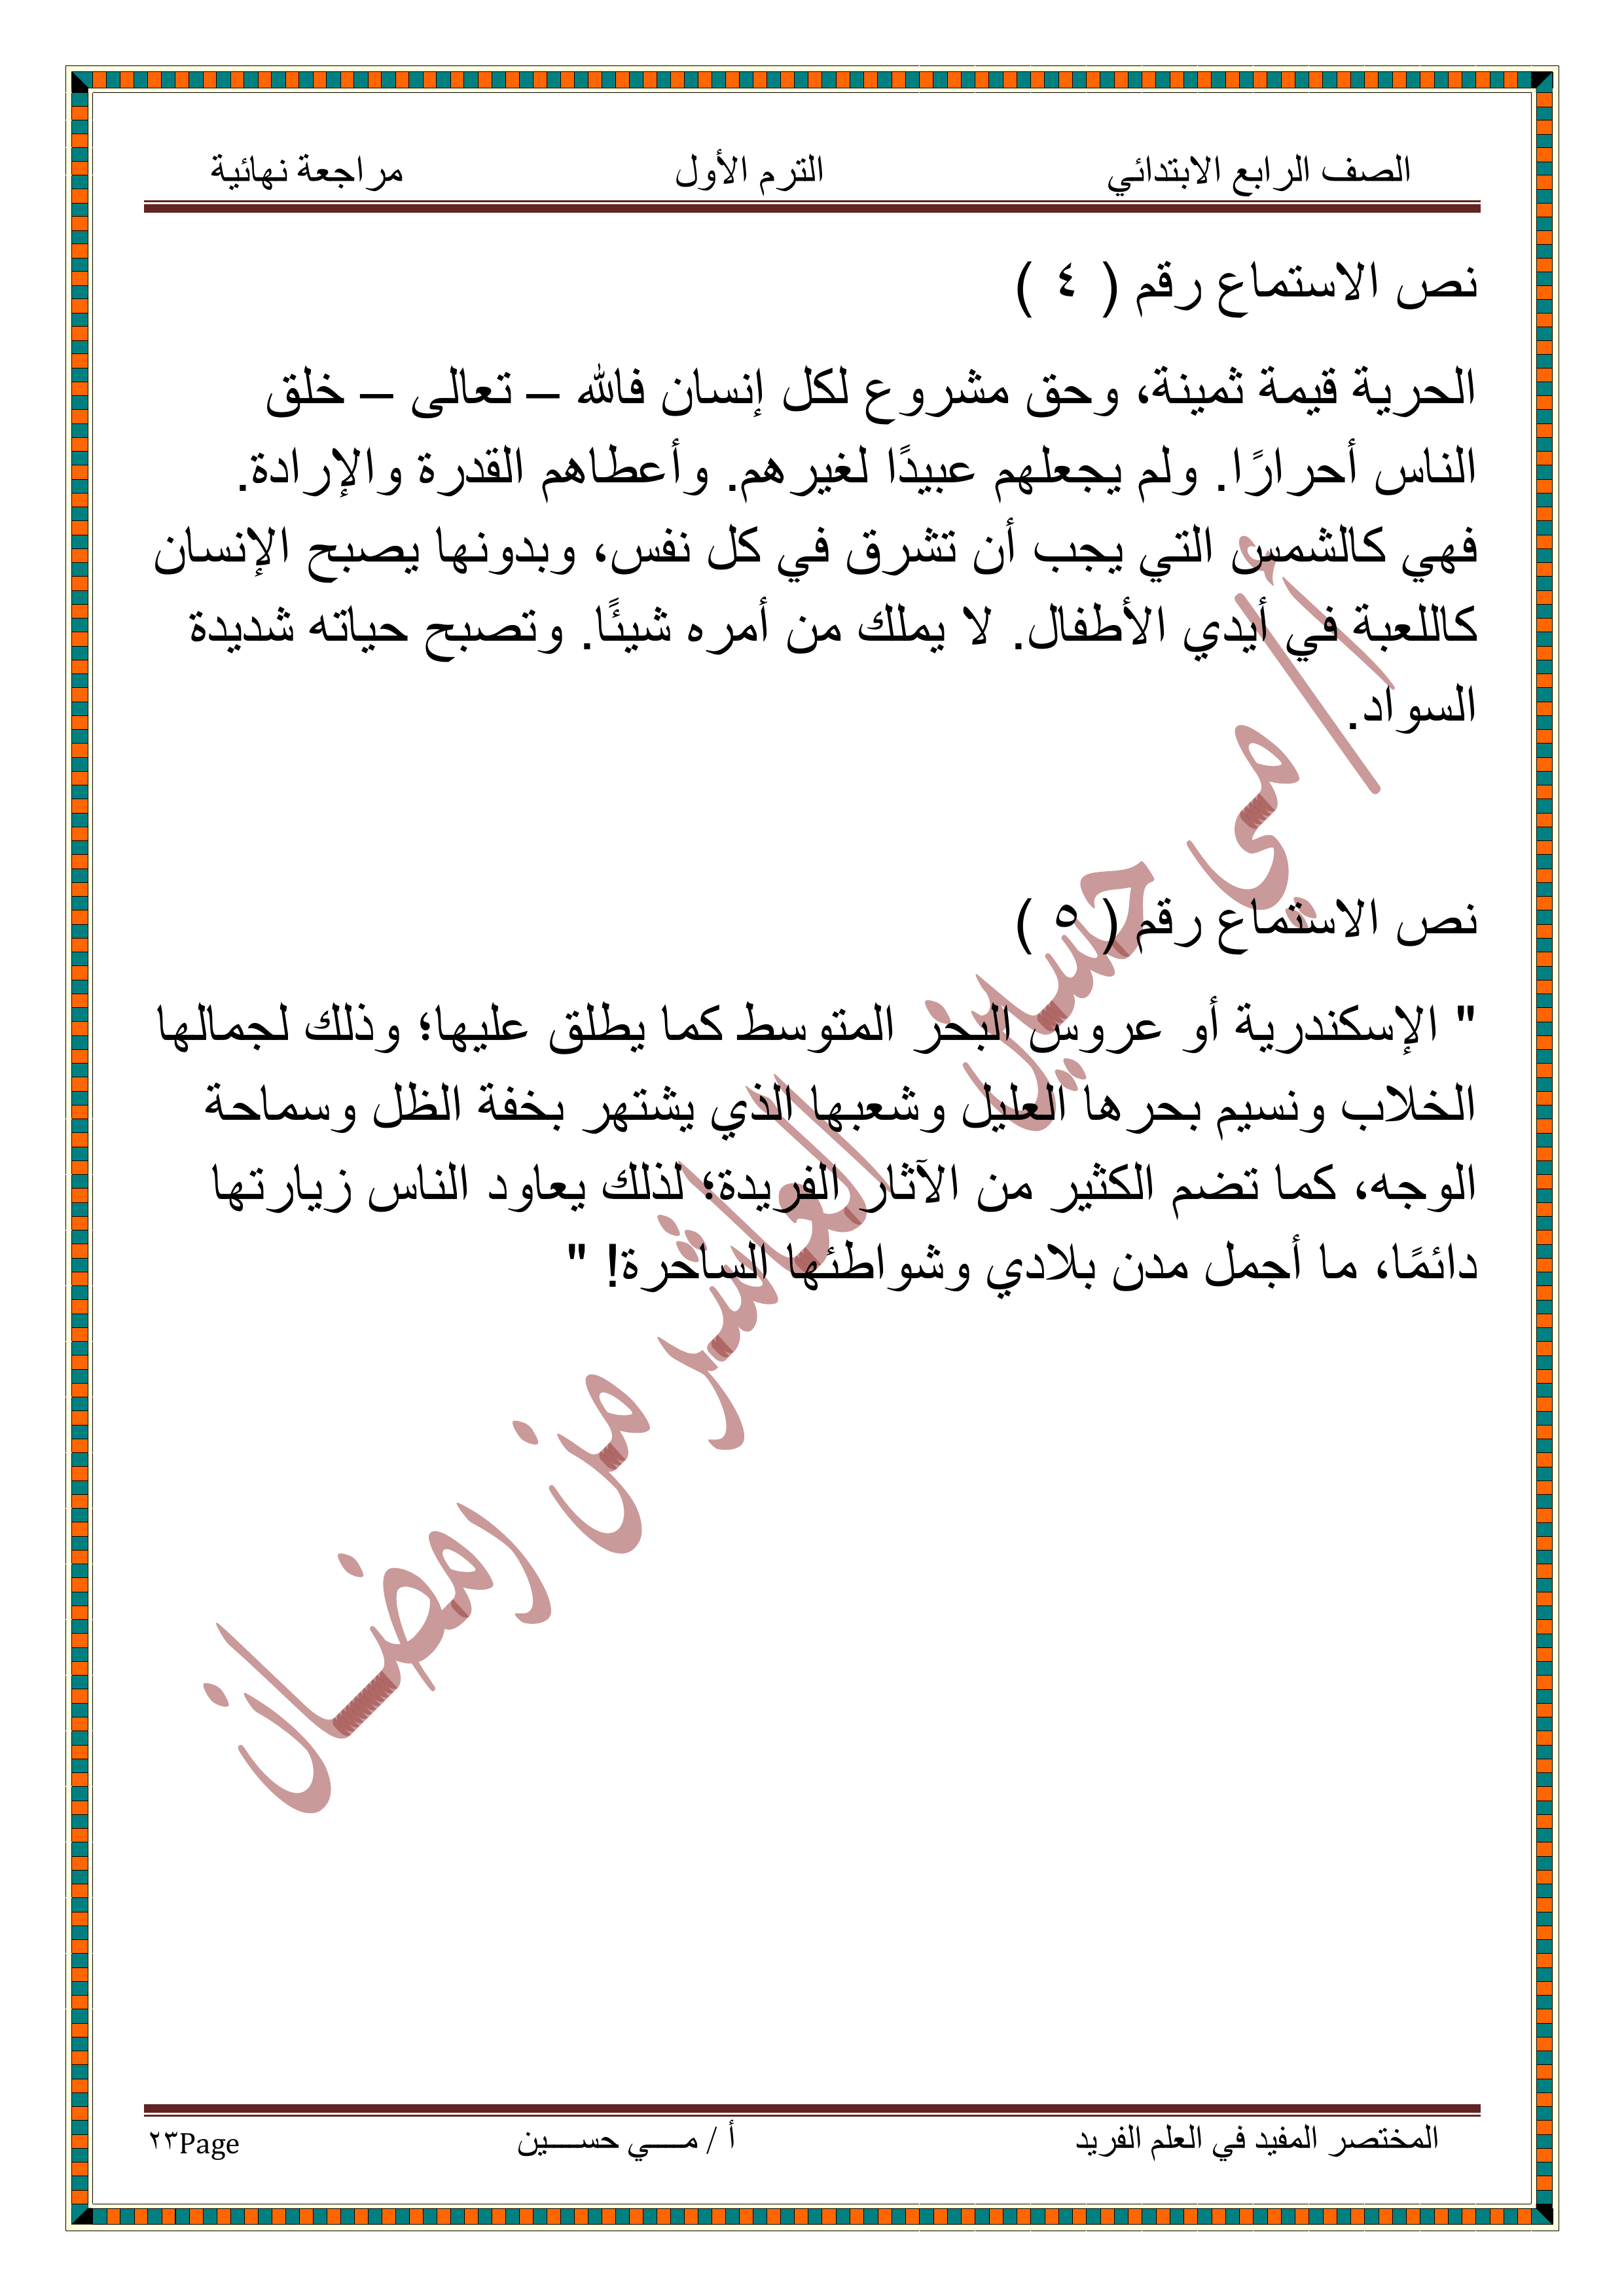 الصف الرابع الابتدائي الترم الأول مراجعة نهائية
نص الاستماع رقم ( ٤ )
الحرية قيمة ثمينة، وحق مشروع لكل إنسان فالله – تعالى – خلق
الناس أحرارًا. ولم يجعلهم عبيدًا لغيرهم. وأعطاهم القدرة والإرادة.
فهي كالشمس التي يجب أن تشرق في كل نفس، وبدونها يصبح الإنسان
كاللعبة في أيدي الأطفال. لا يملك من أمره شيئًا. وتصبح حياته شديدة
السواد.
نص الاستماع رقم ( ٥ )
" الإسكندرية أو عروس البحر المتوسط كما يطلق عليها؛ وذلك لجمالها
الخلاب ونسيم بحرها العليل وشعبها الذي يشتهر بخفة الظل وسماحة
الوجه، كما تضم الكثير من الآثار الفريدة؛ لذلك يعاود الناس زيارتها
دائمًا، ما أجمل مدن بلادي وشواطئها الساحرة! "
أ/ مي حسين العاشر من رمضان
المختصر المفيد في العلم الفريد أ / مـــي حســـين ٢٣Page